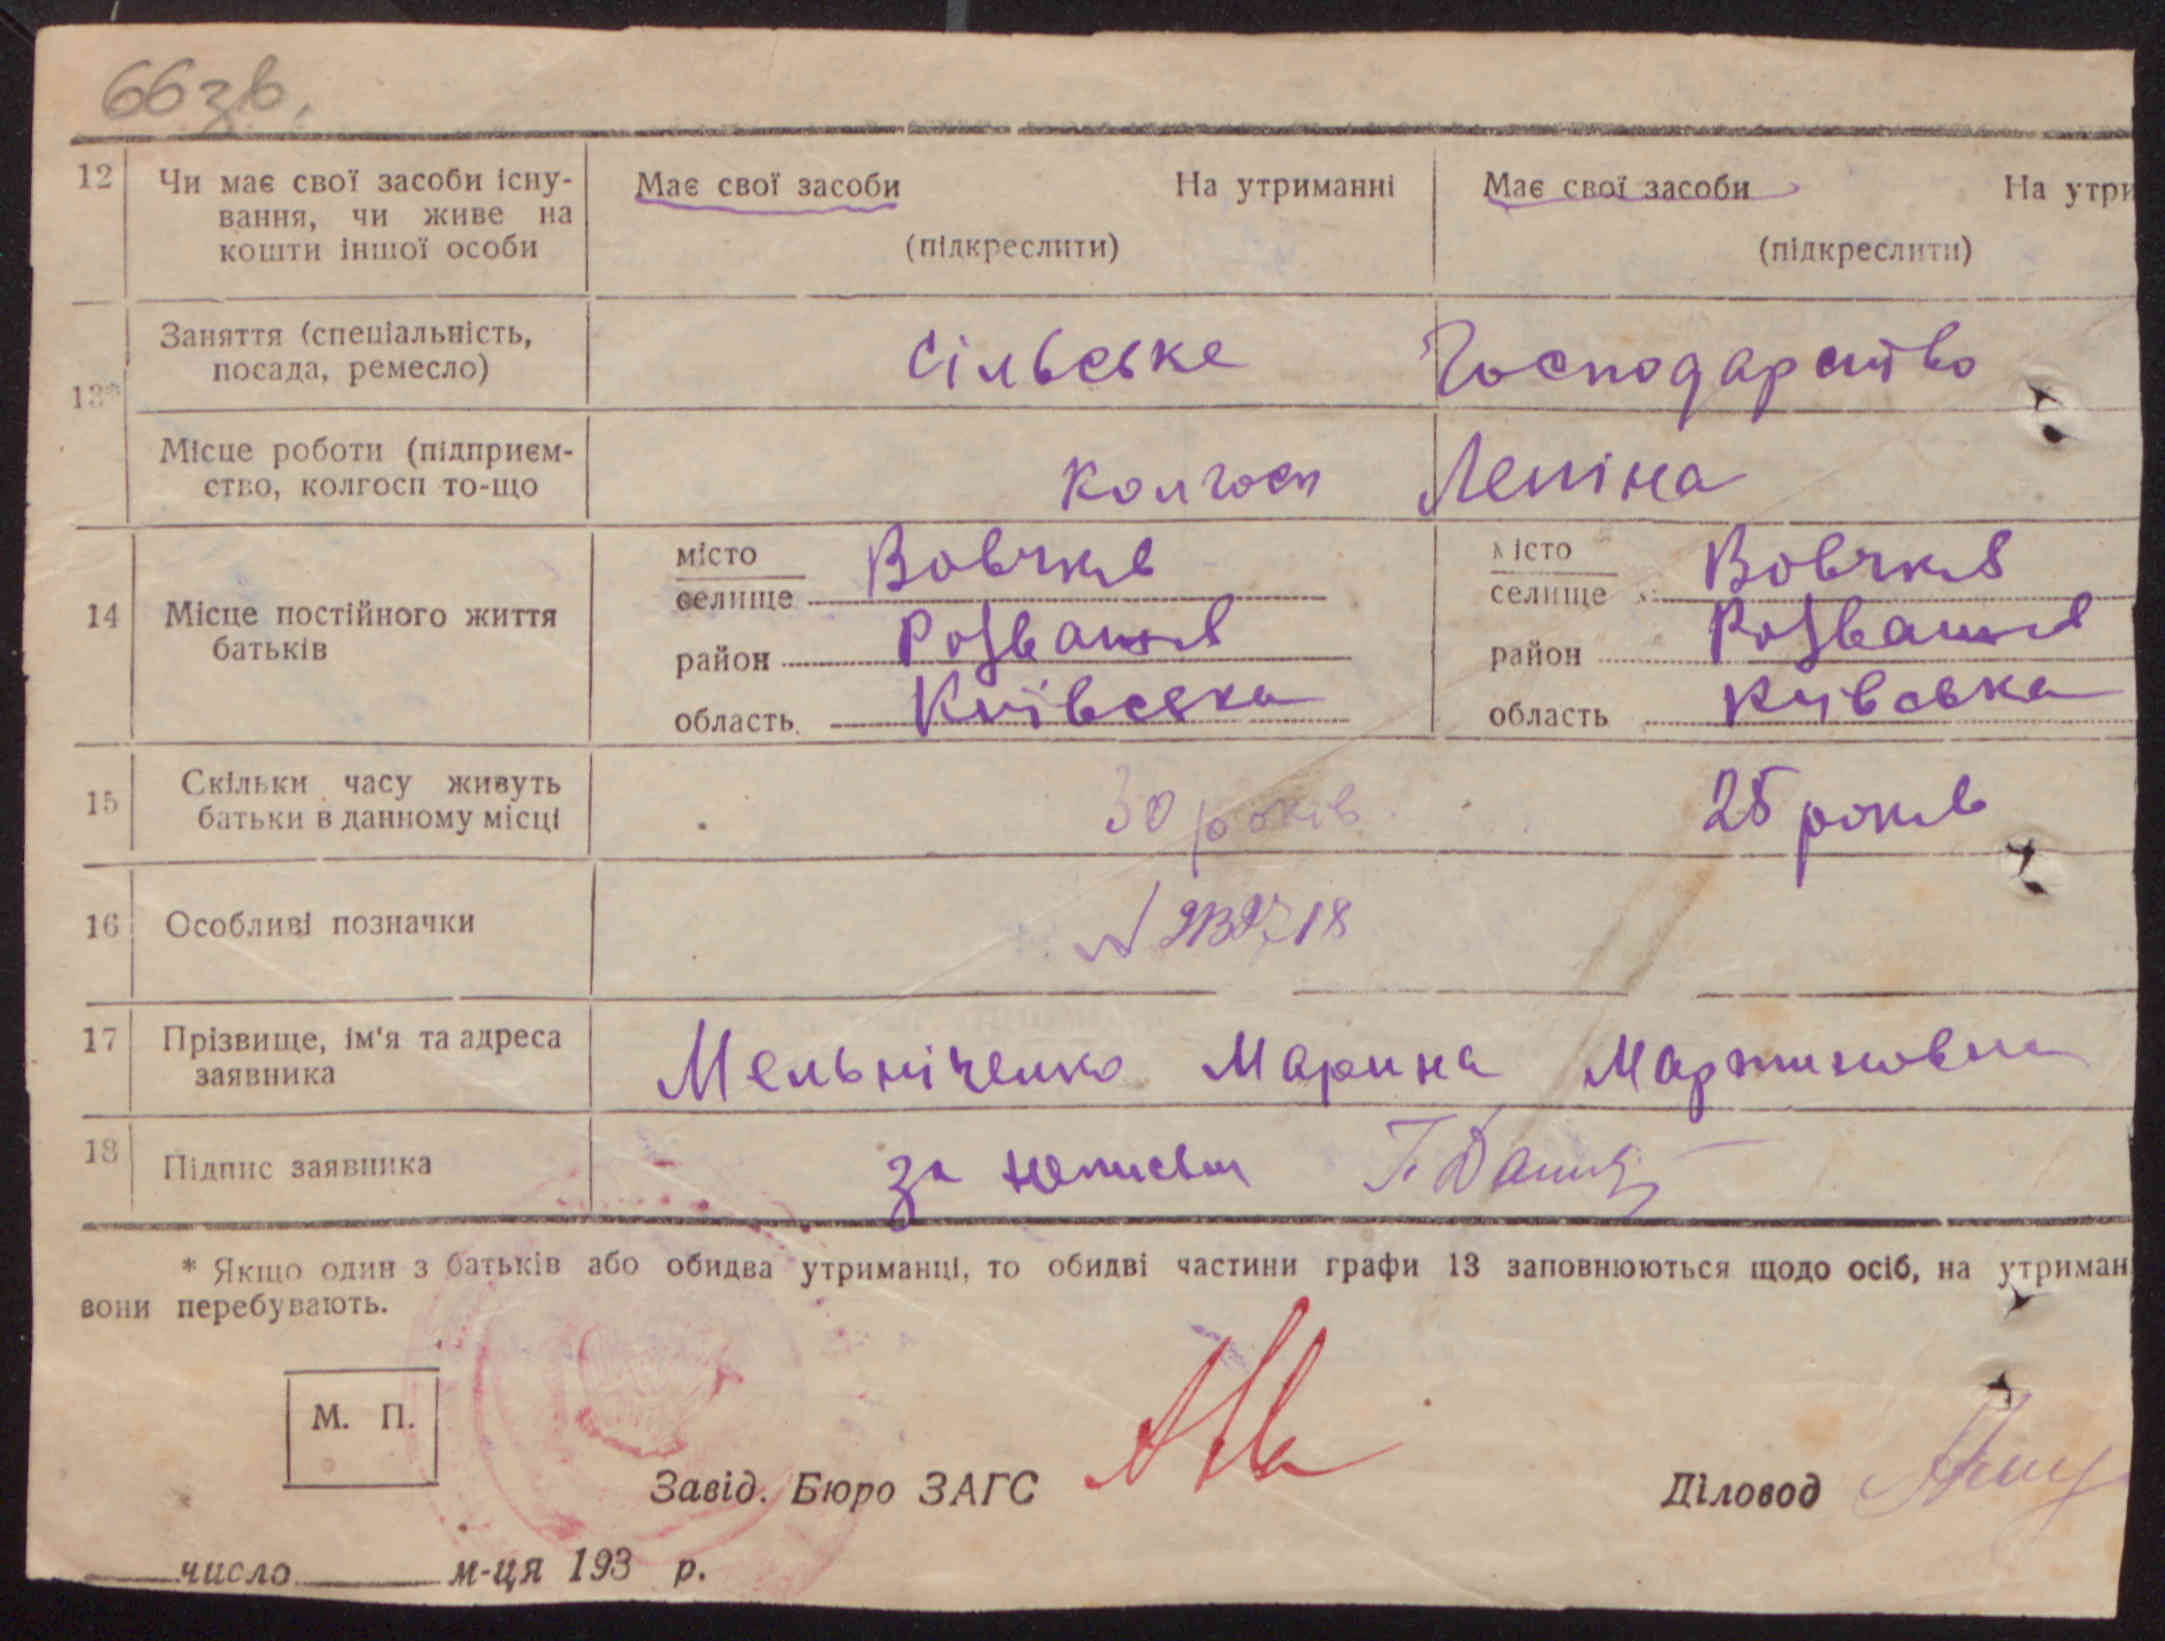 66 зв.
12 Чи має свої засоби існу-
вання, чи живе на
кошти іншої особи
Має свої засоби На утриманні Має свої засоби На утри
(підкреслити) (підкреслити)
13* Заняття (спеціальність,
посада, ремесло)
Сільське Господарство
Місце роботи (підприєм-
ство, колгосп то-що
Колгосп Леніна
14 Місце постійного життя
батьків
місто Вовчків місто Вовчків
селище селище
район Розважів район Розважів
область Київська область Київська
15 Скільки часу живуть
батьки в данному місці
30 років. 25 років
16 Особливі позначки
17 Прізвище, ім'я та адреса
заявника
Мельніченко Марина Мартиновна
18 Підпис заявника
за
* Якщо один з батьків або обидва утриманці, то обидві частини графи 13 заповнюються щодо осіб, на утриман
вони перебувають.
М. П.
Завід. Бюро ЗАГС Діловод
число м-ця 193 р.